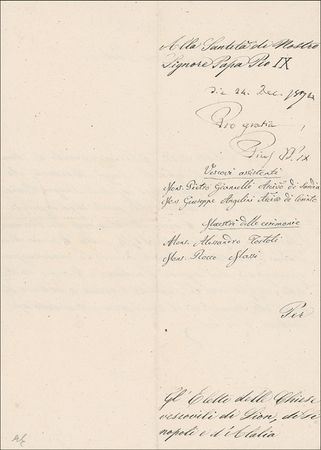 Alla Santità di Nostro
Signore Papa Pio IX
Die 24. Dec.
Pro gratia
Pius PP. IX
Vescovi assistenti
Mons. Pietro Giannelli Arciv. di Sardia
Mons. Giuseppe Angelini Arciv. di Corinto
Maestri delle cerimonie
Mons. Alessandro Tortoli
Mons. Rocco Massi
Per
Gl' Eletti delle Chiese
vescovili di Sion, di Si
nopoli e d'Atalia